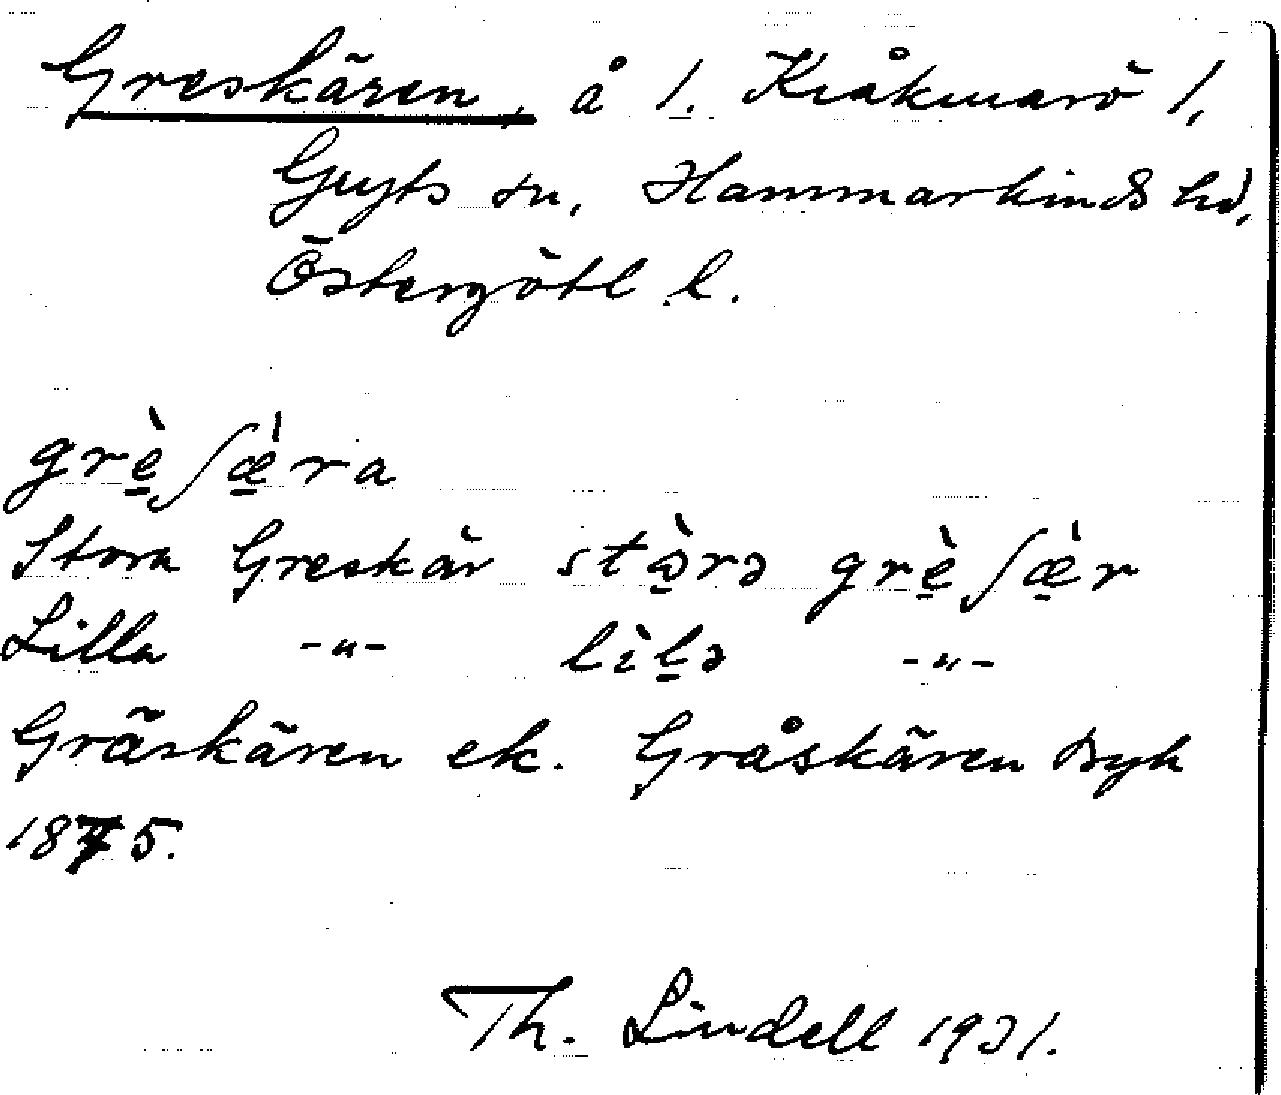 Greskären, å 1. Kråkmarö 1,
Gryts sn, Hammarkinds hd,
Östergötl. l.
grè̠ʃæ̠̀ra
Stora Greskär stɷ̠̀rə grè̠ʃæ̠̀r
Lilla -"- lìl̠ə -"-
Gräskären ek. Gråskären byk
1875.
Th. Lindell 1931.